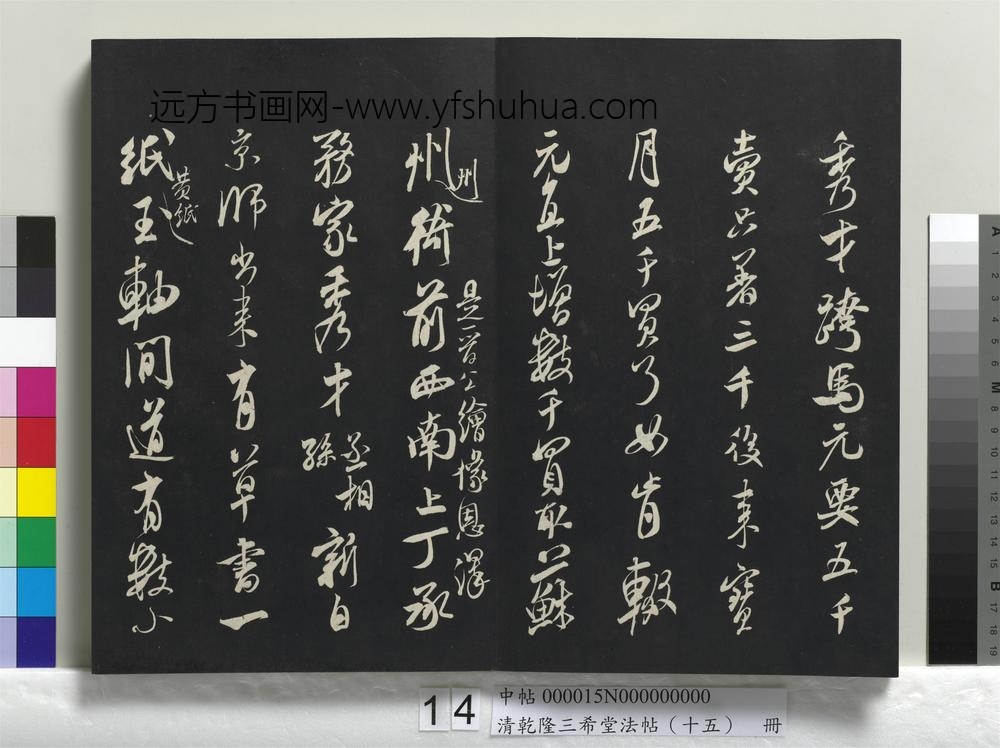 秀才馬元要五千
賣只著三千後來寶
月五千買了如肯輟
元直上增數千買取蘇
州州衙前西南上丁承
是丁晉公繪像恩澤
務家秀才丞相孫新自
京師出來有草書一
紙黃紙玉軸間道有數小
远方书画网-www.yfshuhua.com
14
中帖 000015N000000000
清乾隆三希堂法帖（十五） 冊
A 1 2 3 4 5 6 M 8 9 10 11 12 13 14 15 B 17 18 19